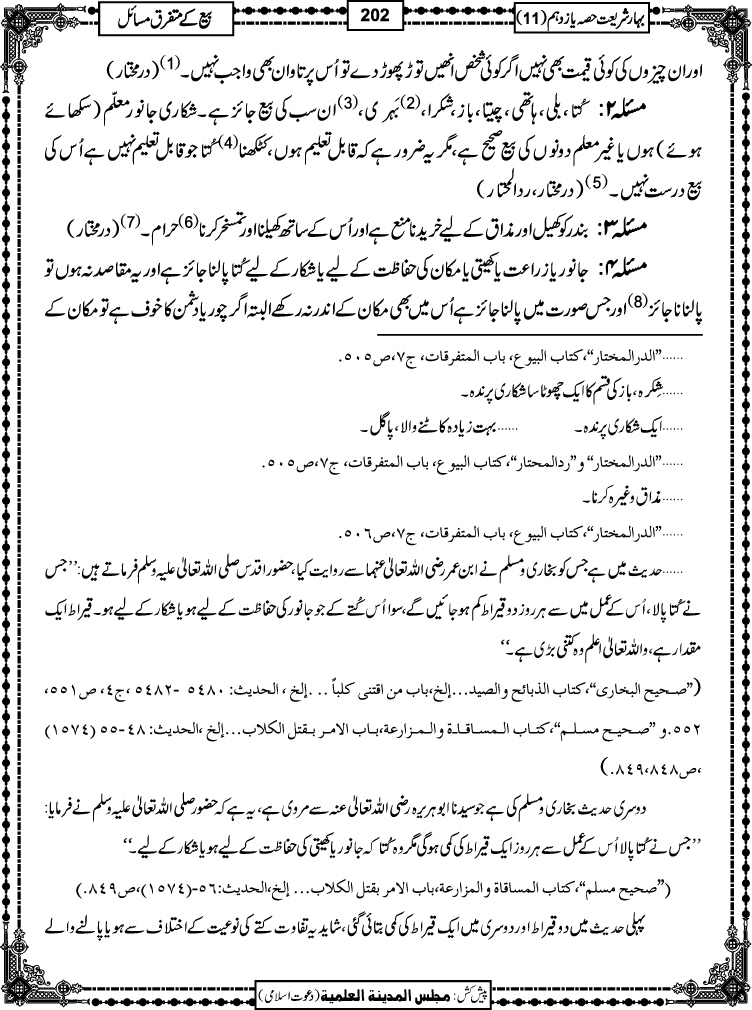 بہارِ شریعت حصہ یازدہم (11)
202
بیع کے متفرق مسائل
اور ان چیزوں کی کوئی قیمت بھی نہیں اگر کوئی شخص انھیں توڑ پھوڑ دے تو اُس پر تاوان بھی واجب نہیں۔(1) (درمختار)
مسئلہ ۲: کُتّا، بلی، ہاتھی، چیتا، باز، شکرا،(2) بَہری،(3) ان سب کی بیع جائز ہے۔ شکاری جانور معلّم (سکھائے
ہوئے) ہوں یا غیر معلم دونوں کی بیع صحیح ہے، مگر یہ ضرور ہے کہ قابل تعلیم ہوں، کٹکھنا(4) کُتّا جو قابل تعلیم نہیں ہے اُس کی
بیع درست نہیں۔(5) (درمختار، ردالمحتار)
مسئلہ ۳: بندر کو کھیل اور مذاق کے لیے خریدنا منع ہے اور اُس کے ساتھ کھیلنا اور تمسخر کرنا(6) حرام۔(7) (درمختار)
مسئلہ ۴: جانور یا زراعت یا کھیتی یا مکان کی حفاظت کے لیے یا شکار کے لیے کُتّا پالنا جائز ہے اور یہ مقاصد نہ ہوں تو
پالنا ناجائز(8) اور جس صورت میں پالنا جائز ہے اُس میں بھی مکان کے اندر نہ رکھے البتہ اگر چور یا دشمن کا خوف ہے تو مکان کے
......”الدرالمختار“، کتاب البیوع، باب المتفرقات، ج۷، ص۵۰۵.
......شِکرہ، باز کی قسم کا ایک چھوٹا سا شکاری پرندہ۔
......ایک شکاری پرندہ۔ ......بہت زیادہ کاٹنے والا، پاگل۔
......”الدرالمختار“ و”ردالمحتار“، کتاب البیوع، باب المتفرقات، ج۷، ص۵۰۵.
......مذاق وغیرہ کرنا۔
......”الدرالمختار“، کتاب البیوع، باب المتفرقات، ج۷، ص۵۰۶.
......حدیث میں ہے جس کو بخاری و مسلم نے ابن عمر رضی اللہ تعالیٰ عنہما سے روایت کیا، حضور اقدس صلی اللہ تعالیٰ علیہ وسلم فرماتے ہیں: ”جس
نے کُتّا پالا، اُس کے عمل میں سے ہر روز دو قیراط کم ہو جائیں گے، سوا اُس کُتّے کے جو جانور کی حفاظت کے لیے ہو یا شکار کے لیے ہو۔ قیراط ایک
مقدار ہے، واللہ تعالیٰ اعلم وہ کتنی بڑی ہے۔“
(”صحیح البخاری“، کتاب الذبائح والصید...إلخ، باب من اقتنی کلباً ...إلخ، الحدیث: ۵۴۸۰-۵۴۸۲، ج۴، ص۵۵۱،
۵۵۲. و ”صحیح مسلم“، کتاب المساقاة والمزارعة، باب الامر بقتل الکلاب...إلخ، الحدیث: ۴۸-۵۵ (۱۵۷۴)
،ص۸۴۸،۸۴۹.)
دوسری حدیث بخاری و مسلم کی ہے جو سیدنا ابو ہریرہ رضی اللہ تعالیٰ عنہ سے مروی ہے، یہ ہے کہ حضور صلی اللہ تعالیٰ علیہ وسلم نے فرمایا:
”جس نے کُتّا پالا اُس کے عمل سے ہر روز ایک قیراط کی کمی ہوگی مگر وہ کُتّا کہ جانور یا کھیتی کی حفاظت کے لیے ہو یا شکار کے لیے۔“
(”صحیح مسلم“، کتاب المساقاة والمزارعة، باب الامر بقتل الکلاب... إلخ، الحدیث: ۵۶-(۱۵۷۴)، ص۸۴۹.)
پہلی حدیث میں دو قیراط اور دوسری میں ایک قیراط کی کمی بتائی گئی، شاید یہ تفاوت کتے کی نوعیت کے اختلاف سے ہو یا پالنے والے
پیش کش: مجلس المدینۃ العلمیۃ (دعوت اسلامی)